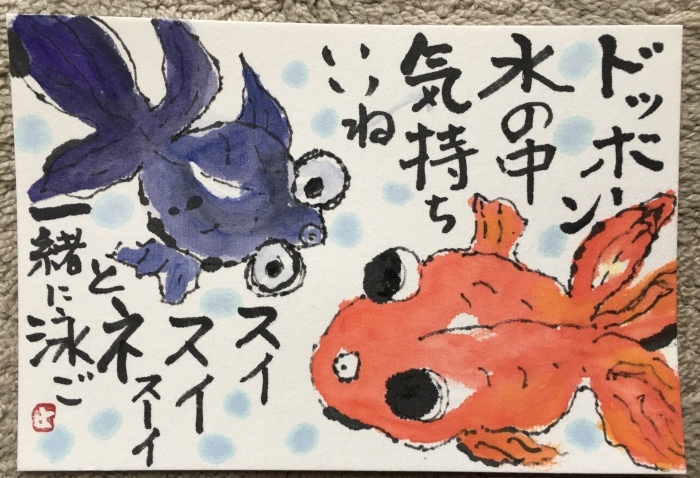 ドッボーン
水の中
気持ち
いいね
スイ
スイ
スーイ
とネ
一緒に泳ご